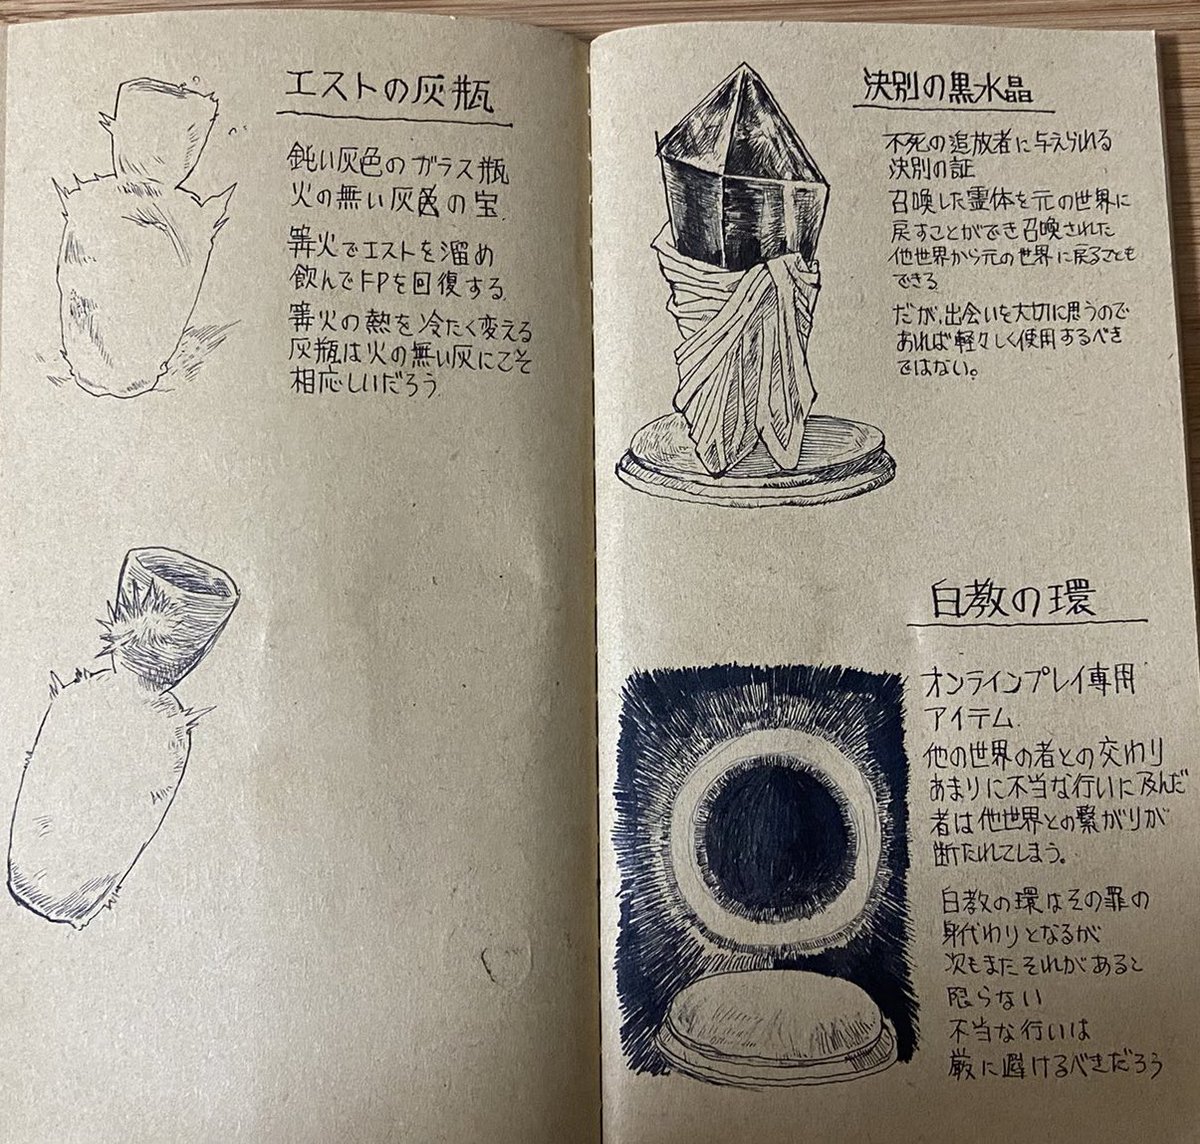 エストの灰瓶
鈍い灰色のガラス瓶
火の無い灰色の宝
篝火でエストを溜め
飲んでFPを回復する
篝火の熱を冷たく変える
灰瓶は火の無い灰にこそ
相応しいだろう
決別の黒水晶
不死の追放者に与えられる
決別の証
召喚した霊体を元の世界に
戻すことができ召喚された
他世界から元の世界に戻ることも
できる
だが、出会いを大切に思うので
あれば軽々しく使用するべき
ではない。
白教の環
オンラインプレイ専用
アイテム.
他の世界の者との交わり
あまりに不当な行いに及んだ
者は他世界との繋がりが
断たれてしまう。
白教の環はその罪の
身代わりとなるが
次もまたそれがあると
限らない
不当な行いは
厳に避けるべきだろう